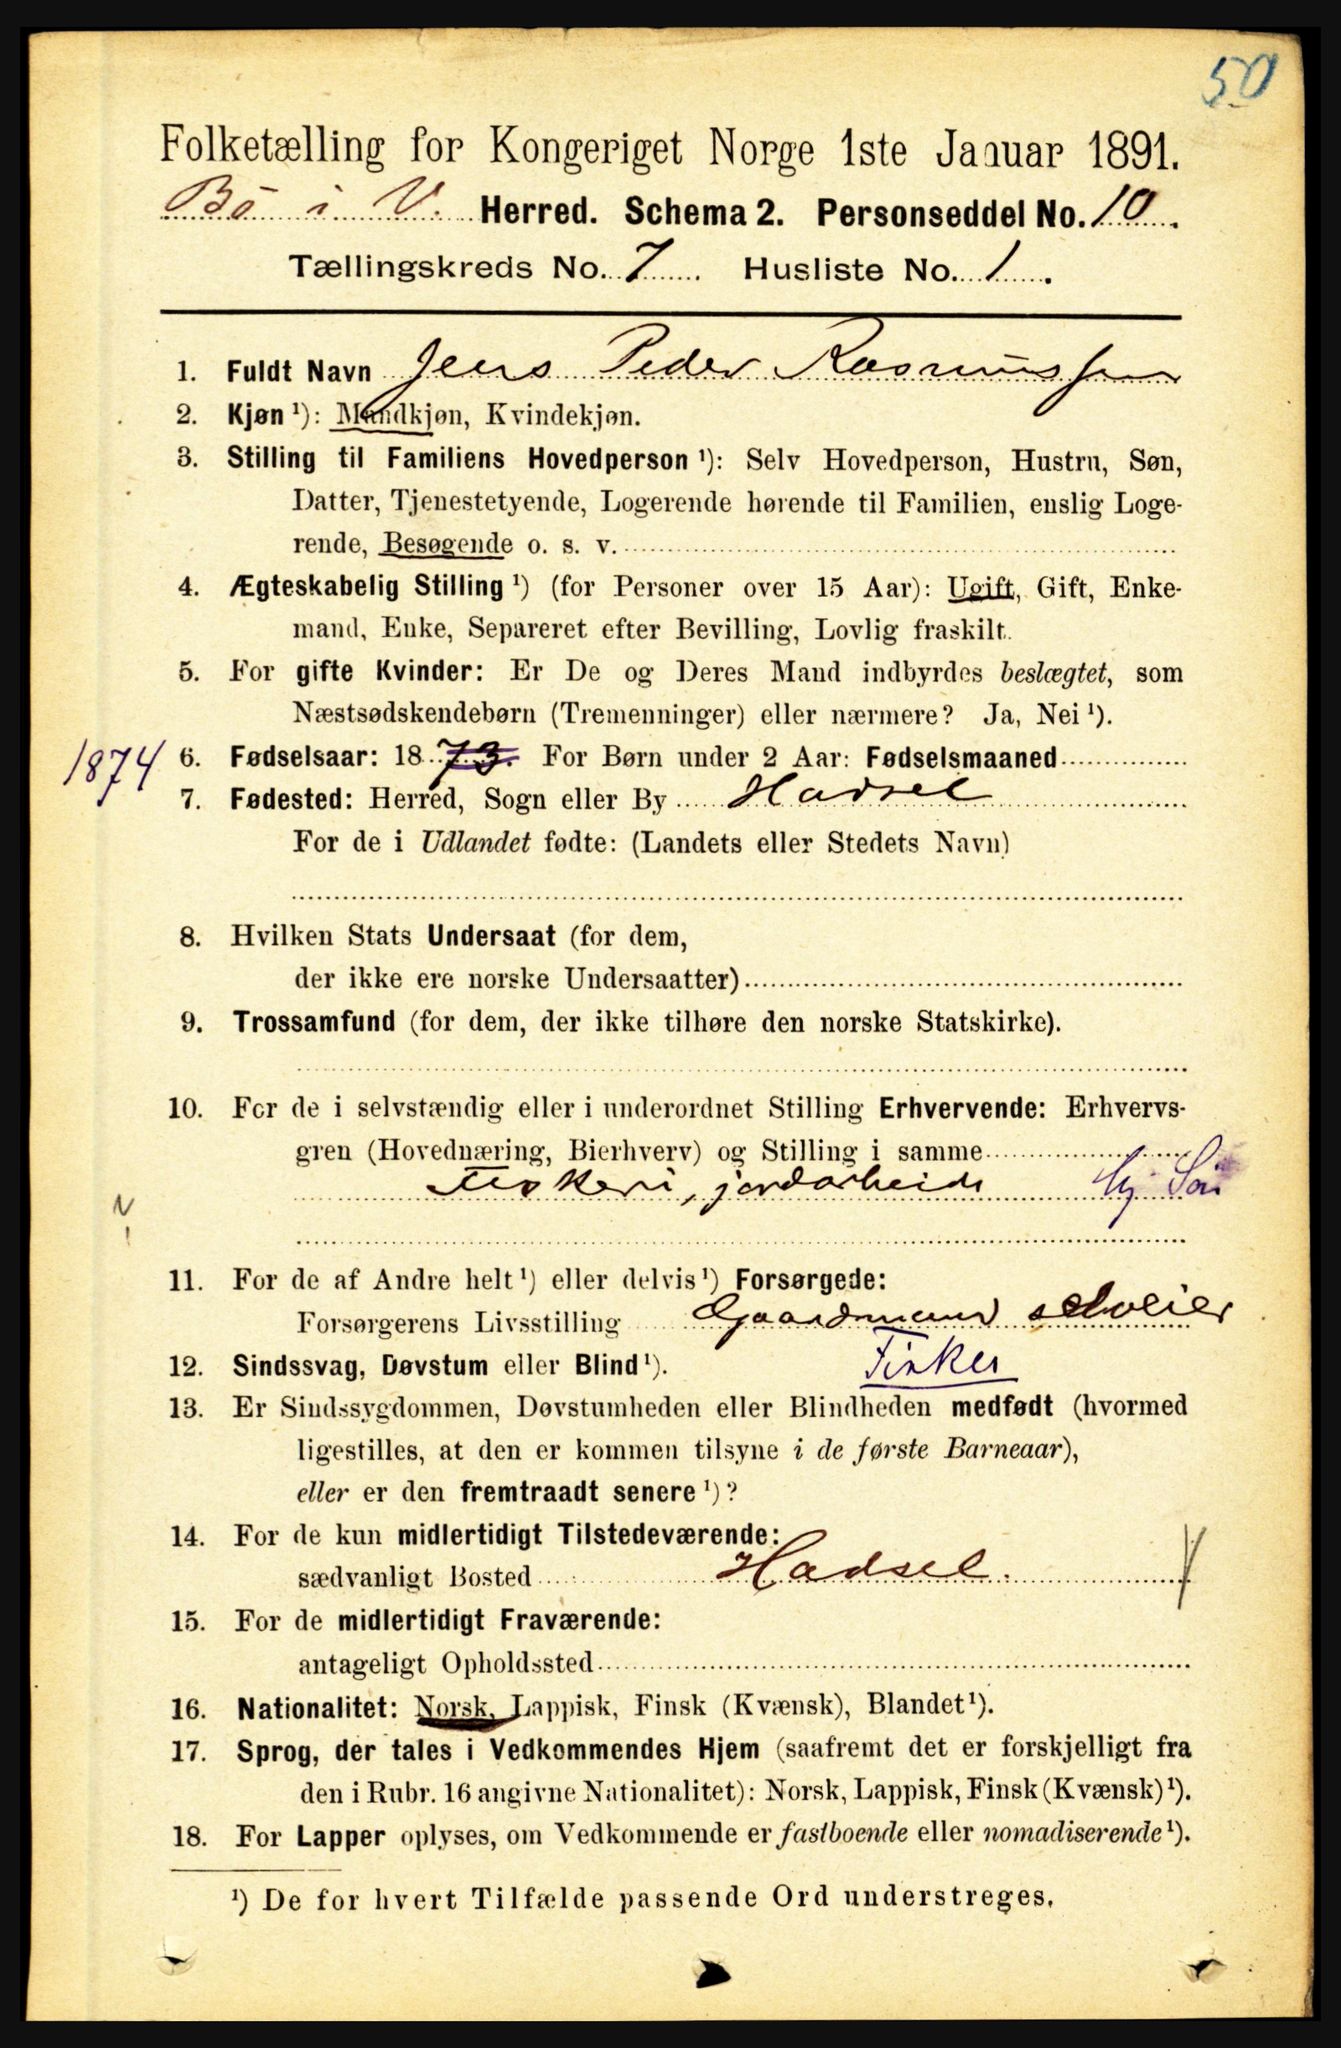 50
Folketælling for Kongeriget Norge 1ste Januar 1891.
Bö i V. Herred. Schema 2. Personseddel No. 10.
Tællingskreds No. 7 Husliste No. 1.
1. Fuldt Navn Jens Peder Rasmussen
2. Kjøn ¹): Mandkjøn, Kvindekjøn.
3. Stilling til Familiens Hovedperson ¹): Selv Hovedperson, Hustru, Søn,
Datter, Tjenestetyende, Logerende hørende til Familien, enslig Loge-
rende, Besøgende o. s. v.
4. Ægteskabelig Stilling ¹) (for Personer over 15 Aar): Ugift, Gift, Enke-
mand, Enke, Separeret efter Bevilling, Lovlig fraskilt.
5. For gifte Kvinder: Er De og Deres Mand indbyrdes beslægtet, som
Næstsødskendebørn (Tremenninger) eller nærmere? Ja, Nei ¹).
1874 6. Fødselsaar: 1873. For Børn under 2 Aar: Fødselsmaaned
7. Fødested: Herred, Sogn eller By Hadsel
For de i Udlandet fødte: (Landets eller Stedets Navn)
8. Hvilken Stats Undersaat (for dem,
der ikke ere norske Undersaatter)
9. Trossamfund (for dem, der ikke tilhøre den norske Statskirke).
10. For de i selvstændig eller i underordnet Stilling Erhvervende: Erhvervs-
gren (Hovednæring, Bierhverv) og Stilling i samme
Fiskeri, jordarbeide hj Søn
11. For de af Andre helt ¹) eller delvis ¹) Forsørgede:
Forsørgerens Livsstilling Gaardmand selveier
12. Sindssvag, Døvstum eller Blind ¹). Fisker
13. Er Sindssygdommen, Døvstumheden eller Blindheden medfødt (hvormed
ligestilles, at den er kommen tilsyne i de første Barneaar),
eller er den fremtraadt senere ¹)?
14. For de kun midlertidigt Tilstedeværende:
sædvanligt Bosted Hadsel.
15. For de midlertidigt Fraværende:
antageligt Opholdssted
16. Nationalitet: Norsk, Lappisk, Finsk (Kvænsk), Blandet ¹).
17. Sprog, der tales i Vedkommendes Hjem (saafremt det er forskjelligt fra
den i Rubr. 16 angivne Nationalitet): Norsk, Lappisk, Finsk (Kvænsk) ¹).
18. For Lapper oplyses, om Vedkommende er fastboende eller nomadiserende ¹).
¹) De for hvert Tilfælde passende Ord understreges.